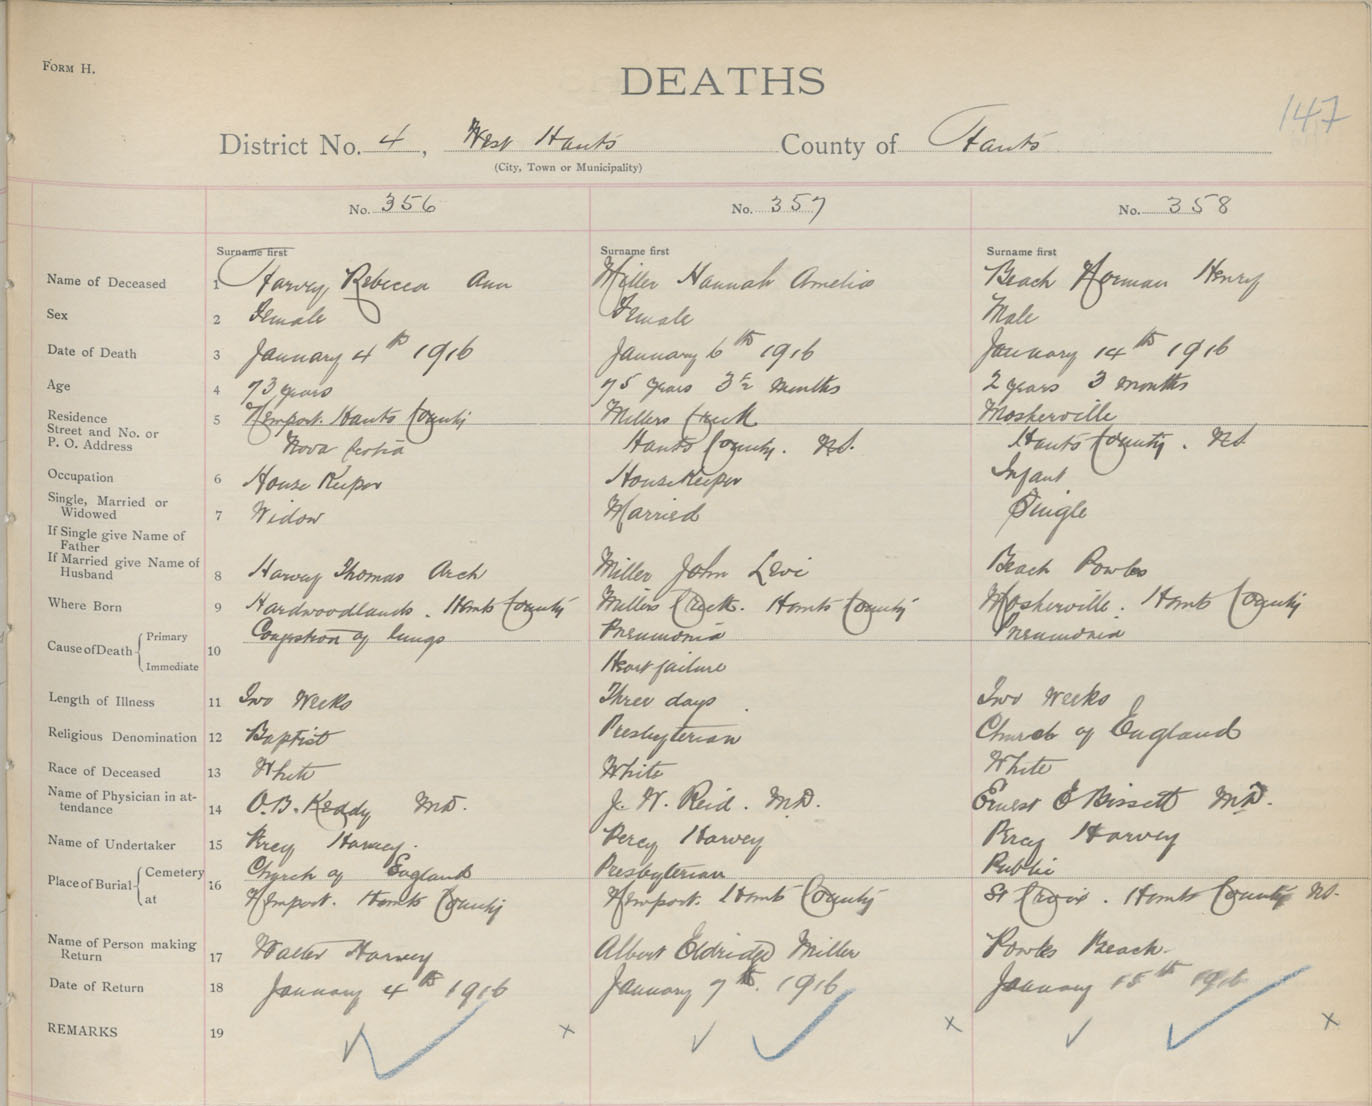 FORM H.
DEATHS
147
District No. 4, West Hants County of Hants
(City, Town or Municipality)
No. 356 No. 357 No. 358
Surname first Surname first Surname first
Name of Deceased 1 Harvey Rebecca Ann Miller Hannah Amelia Beach Norman Henry
Sex 2 Female Female Male
Date of Death 3 January 4th 1916 January 6th 1916 January 14th 1916
Age 4 73 years 75 years 3 months 2 years 3 months
Residence 5 Newport. Hants County Millers Creek Mosherville
Street and No. or
P. O. Address Nova Scotia Hants County. NS. Hants County. NS
Occupation 6 House Keeper HouseKeeper Infant
Single, Married or
Widowed 7 Widow Married Single
If Single give Name of
Father
If Married give Name of
Husband 8 Harvey Thomas Arch Miller John Levi Beach
Where Born 9 Hardwoodlands. Hants County Millers Creek. Hants County Mosherville. Hants County
Cause of Death Primary 10 Congestion of lungs Pneumonia Pneumonia
Immediate Heart failure
Length of Illness 11 Two Weeks Three days. Two Weeks
Religious Denomination 12 Baptist Presbyterian Church of England
Race of Deceased 13 White White White
Name of Physician in at-
tendance 14 O.B. Keddy MD. J. W. Reid. MD. Ernest E Bissett MD.
Name of Undertaker 15 Percy Harvey. Percy Harvey Percy Harvey
Place of Burial Cemetery 16 Church of England Presbyterian Public
at Newport. Hants County Newport. Hants County St Croix. Hants County NS.
Name of Person making
Return 17 Walter Harvey Albert Eldridge Miller Beach
Date of Return 18 January 4th 1916 January 7th. 1916 January 15th 1916
REMARKS 19 x x x